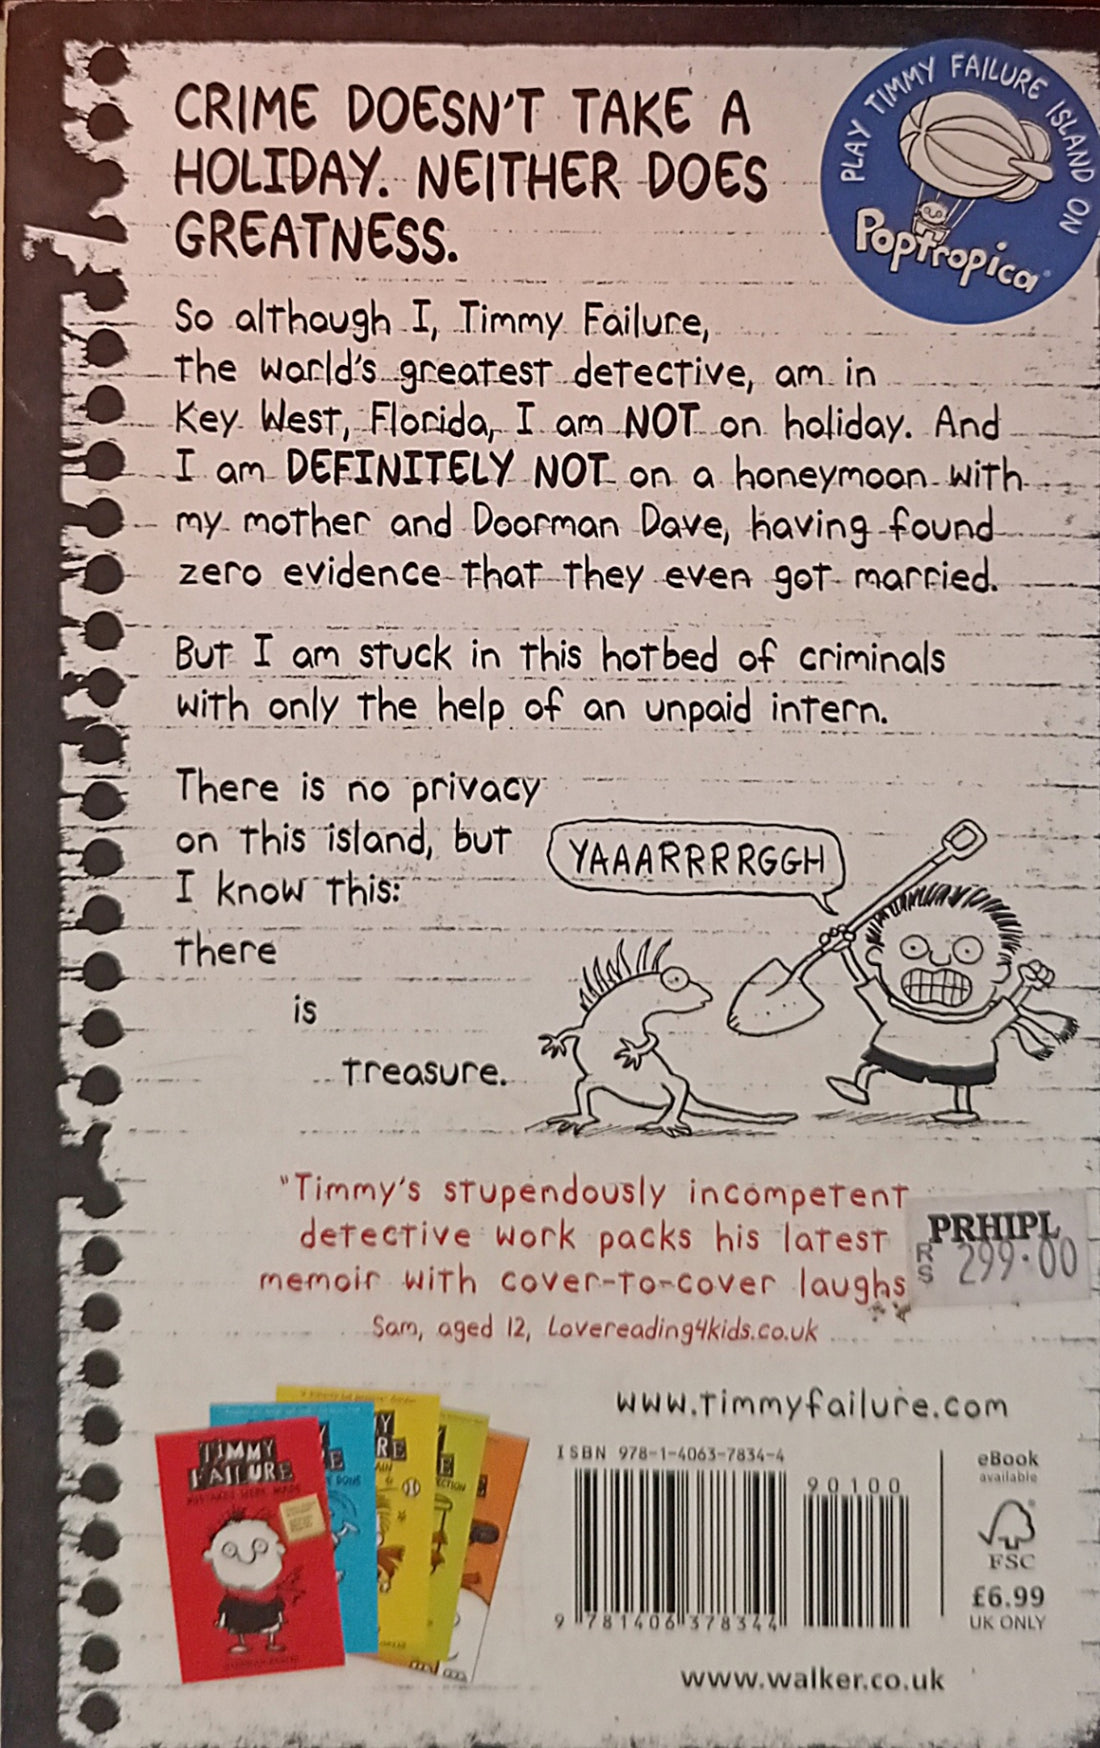 PLAY TIMMY FAILURE ISLAND ON
Poptropica
CRIME DOESN'T TAKE A
HOLIDAY. NEITHER DOES
GREATNESS.
So although I, Timmy Failure,
the world's greatest detective, am in
Key West, Florida, I am NOT on holiday. And
I am DEFINITELY NOT on a honeymoon with
my mother and Doorman Dave, having found
zero evidence that they even got married.
But I am stuck in this hotbed of criminals
with only the help of an unpaid intern.
There is no privacy
on this island, but
I know this:
there
is
treasure.
YAAARRRRGGH
"Timmy's stupendously incompetent
detective work packs his latest
memoir with cover-to-cover laughs
Sam, aged 12, Lovereading4kids.co.uk
PRHIPL
RS 299.00
www.timmyfailure.com
TIMMY
FAILURE
ISBN 978-1-4063-7834-4
90100
9 781406 378344
eBook
available
FSC
£6.99
UK ONLY
www.walker.co.uk